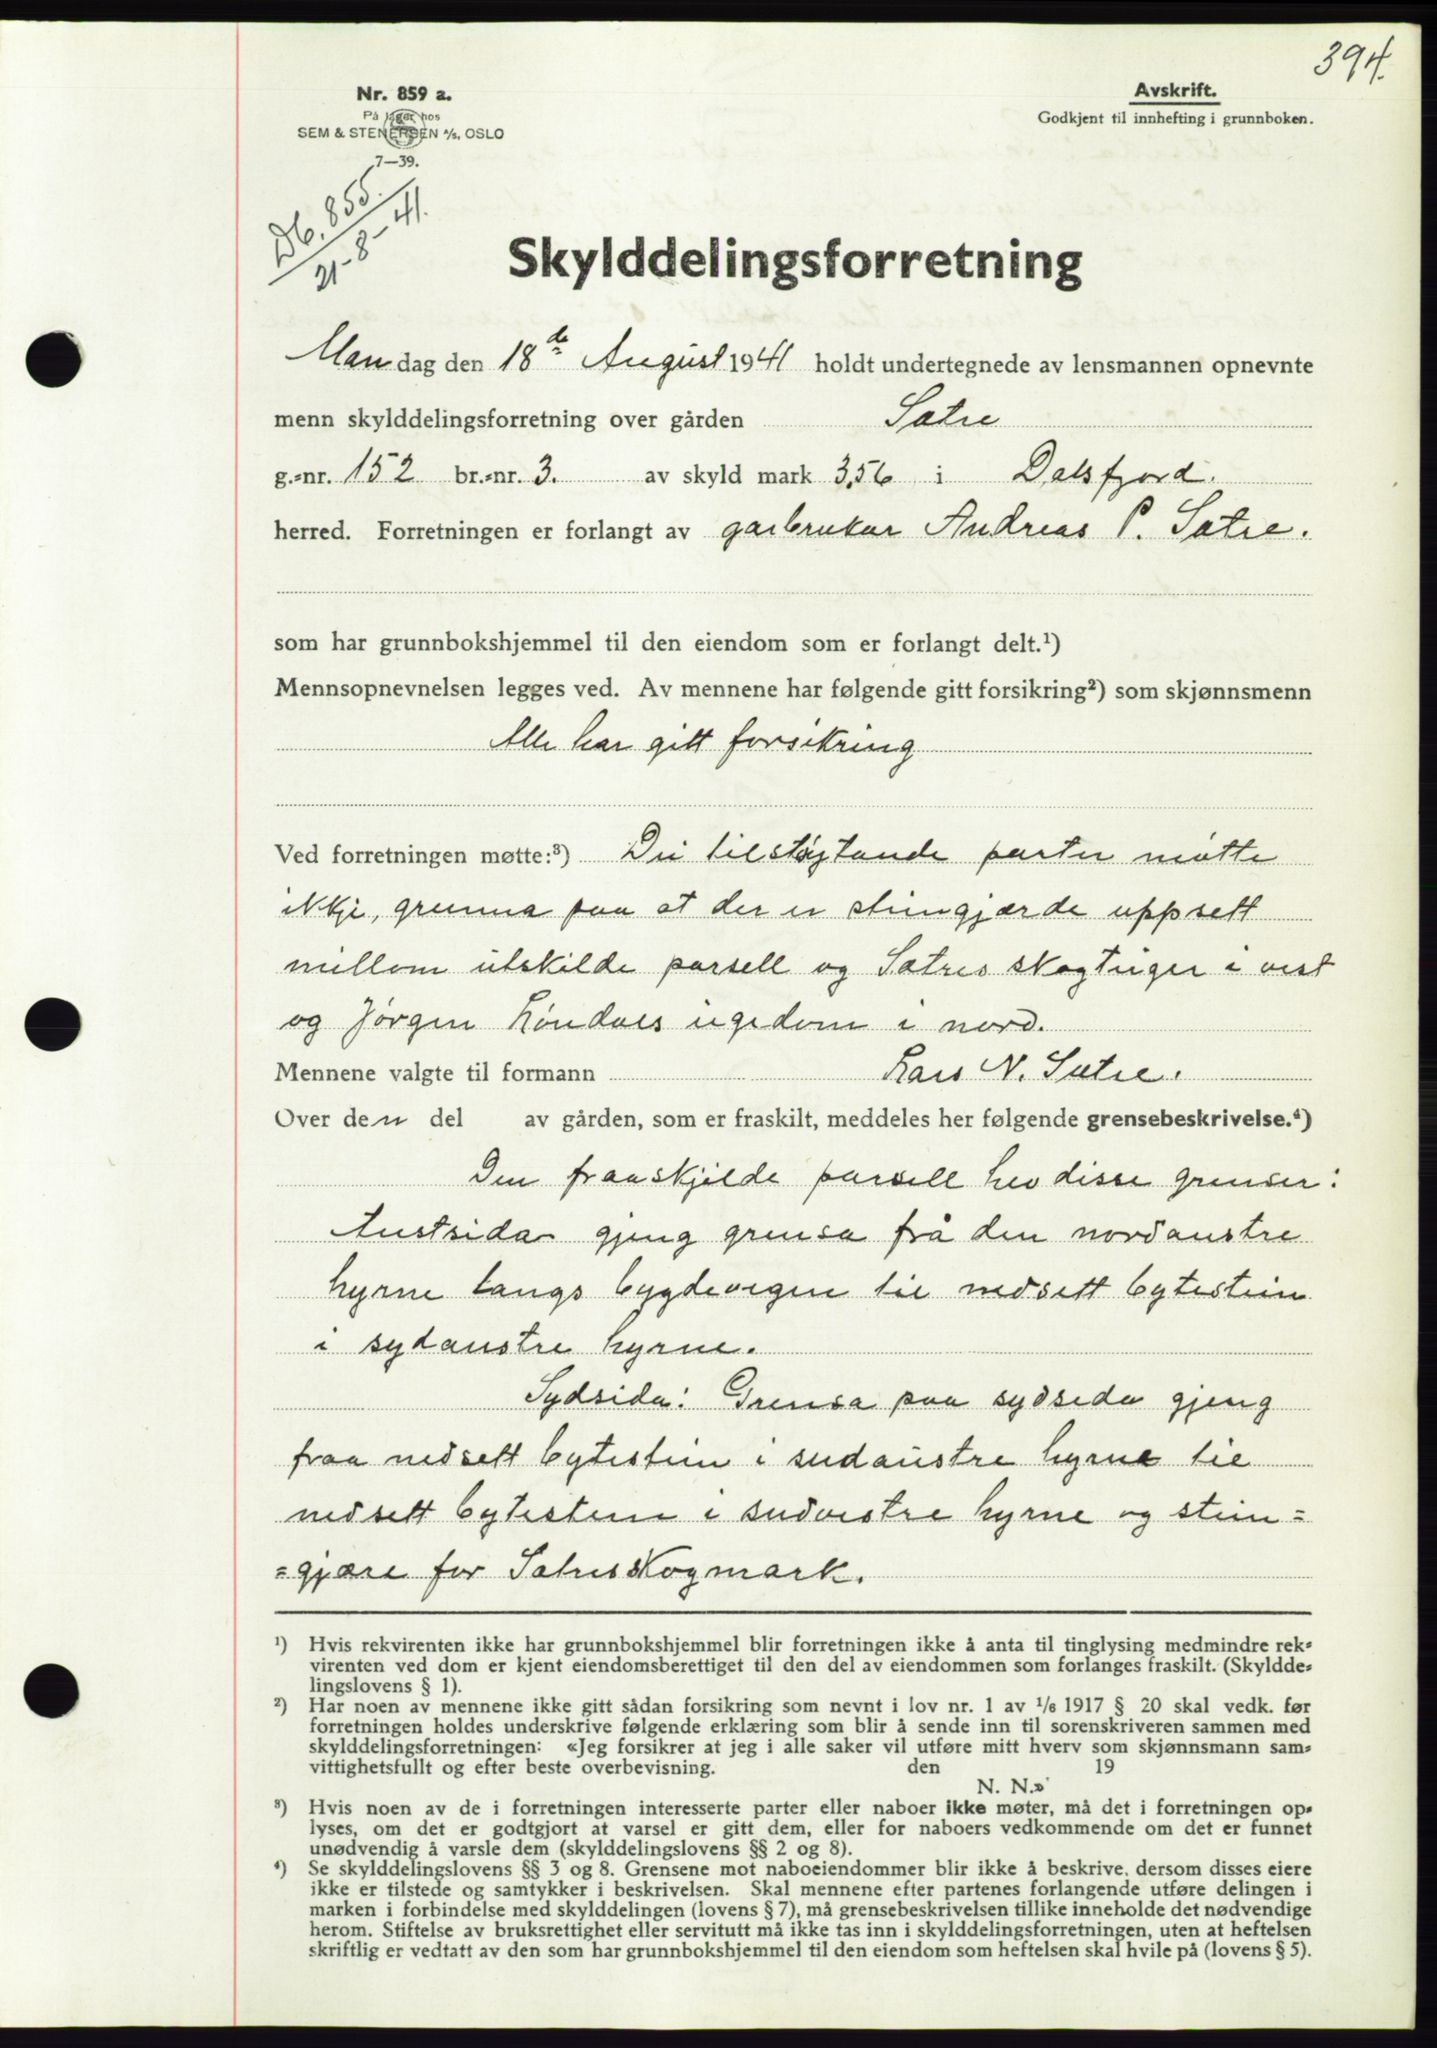 394.
Nr. 859 a.
På lager hos
SEM & STENERSEN A/S, OSLO
7—39.
Avskrift.
Godkjent til innhefting i grunnboken.
Db. 855.
21-8-41.
Skylddelingsforretning
Mandag den 18de August 1941 holdt undertegnede av lensmannen opnevnte
menn skylddelingsforretning over gården Satre
g.-nr. 152 br.-nr. 3. av skyld mark 3,56 i Dalsfjord.
herred. Forretningen er forlangt av garbrukar Andreas P. Satre.
som har grunnbokshjemmel til den eiendom som er forlangt delt.¹)
Mennsopnevnelsen legges ved. Av mennene har følgende gitt forsikring²) som skjønnsmenn
Alle har gitt forsikring
Ved forretningen møtte:³) Dei tilstøytande parter møtte
ikkje, grunna paa at der er steingjærde uppsett
millom utskilde parsell og Satres skogteiger i vest
og Jørgen Løndals eigedom i nord.
Mennene valgte til formann Lars N. Satre.
Over den del av gården, som er fraskilt, meddeles her følgende grensebeskrivelse.⁴)
Den fraaskjilde parsell hev disse grenser:
Austsida gjeng grensa frå den nordaustre
hyrne langs bygdevegen til nedsett bytestein
i sydaustre hyrne.
Sydsida: Grensa paa sydsida gjeng
fraa nedsett bytestein i sudaustre hyrne til
nedsett bytestein i sudvestre hyrne og stein=
=gjære for Satresskogmark.
¹) Hvis rekvirenten ikke har grunnbokshjemmel blir forretningen ikke å anta til tinglysing medmindre rek-
virenten ved dom er kjent eiendomsberettiget til den del av eiendommen som forlanges fraskilt. (Skyldde-
lingslovens § 1).
²) Har noen av mennene ikke gitt sådan forsikring som nevnt i lov nr. 1 av ¹/₆ 1917 § 20 skal vedk. før
forretningen holdes underskrive følgende erklæring som blir å sende inn til sorenskriveren sammen med
skylddelingsforretningen: «Jeg forsikrer at jeg i alle saker vil utføre mitt hverv som skjønnsmann sam-
vittighetsfullt og efter beste overbevisning. den 19
N. N.»
³) Hvis noen av de i forretningen interesserte parter eller naboer ikke møter, må det i forretningen op-
lyses, om det er godtgjort at varsel er gitt dem, eller for naboers vedkommende om det er funnet
unødvendig å varsle dem (skylddelingslovens §§ 2 og 8).
⁴) Se skylddelingslovens §§ 3 og 8. Grensene mot naboeiendommer blir ikke å beskrive, dersom disses eiere
ikke er tilstede og samtykker i beskrivelsen. Skal mennene efter partenes forlangende utføre delingen i
marken i forbindelse med skylddelingen (lovens § 7), må grensebeskrivelsen tillike inneholde det nødvendige
herom. Stiftelse av bruksrettighet eller servitutt må ikke tas inn i skylddelingsforretningen, uten at heftelsen
skriftlig er vedtatt av den som har grunnbokshjemmel til den eiendom som heftelsen skal hvile på (lovens § 5).